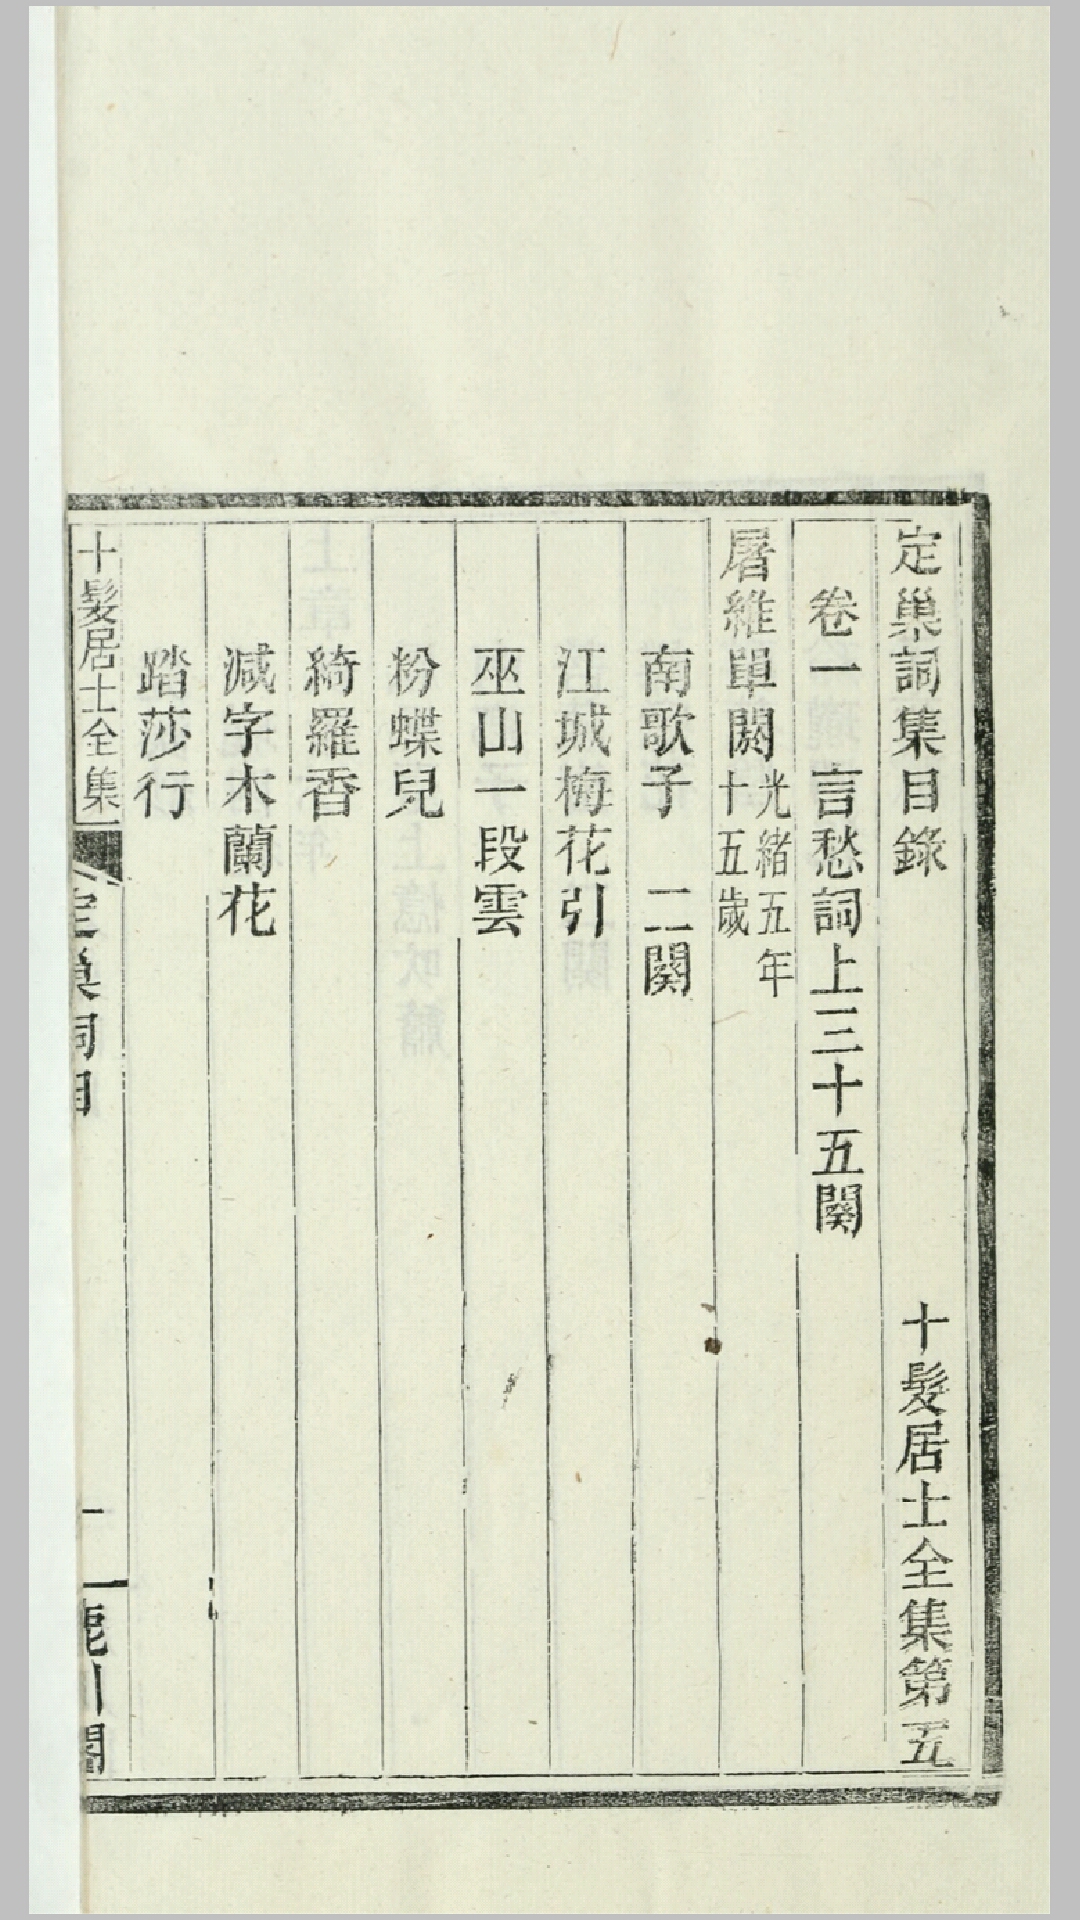 定巢詞集目錄 十髮居士全集第五
卷一 言愁詞上三十五闋
屠維單閼光緒五年十五歲
南歌子 二闋
江城梅花引
巫山一段雲
粉蝶兒
綺羅香
減字木蘭花
踏莎行
十髮居士全集
定巢詞目 一 鹿川閣